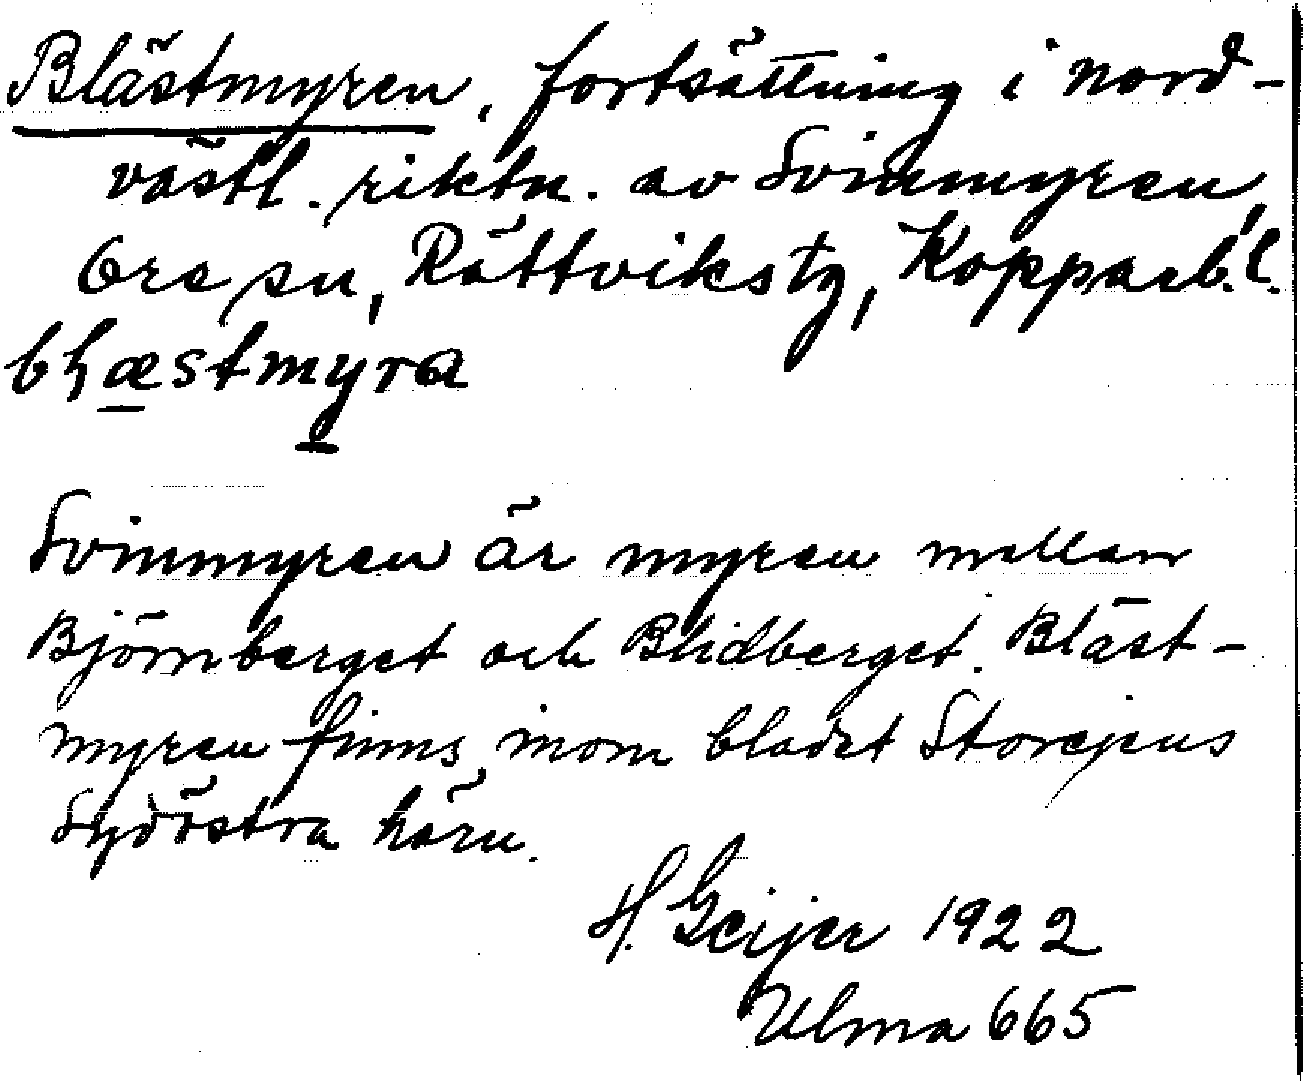 Blästmyren, fortsättning i nord-
västl. riktn. av Svinmyren,
Ore sn, Rättviks tg, Kopparb. l.
bḷæstmyra
Svinmyren är myren mellan
Björnberget och Blidberget. Bläst-
myren finns inom bladet Storejens
Sydöstra hörn.
H. Geijer 1922
Ulma 665